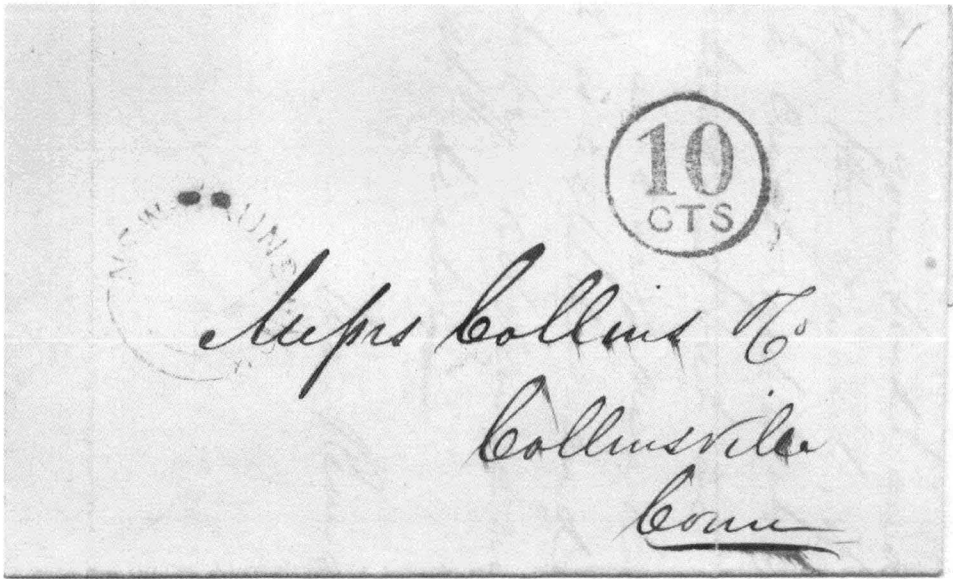 10
CTS
Messrs Collins & Co
Collinsville
Conn